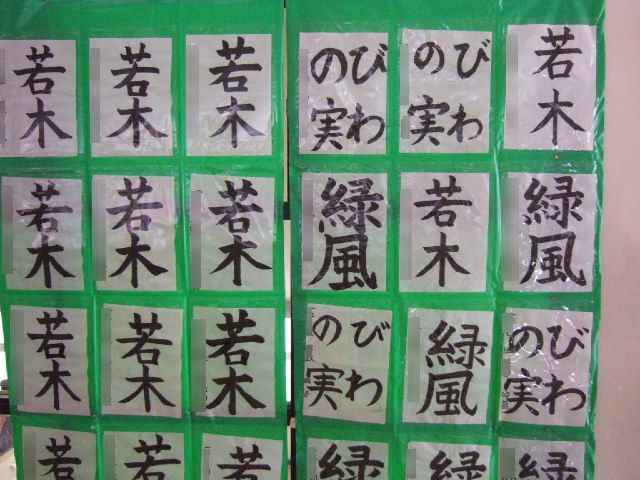 若木
若木
若木
びわ
の実
びわ
の実
若木
若木
若木
若木
緑風
若木
緑風
若木
若木
若木
びわ
の実
緑風
びわ
の実
若
若
若
緑
緑
緑